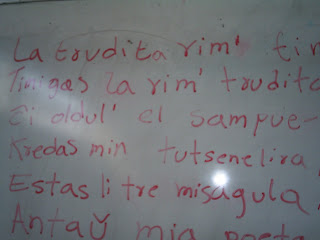 La trudita rim'
Timigas la rim' trudita
Ĉi oldul' el sampue-
Kredas min tutsenelira
Estas li tre misaĝula,
Antaŭ mia